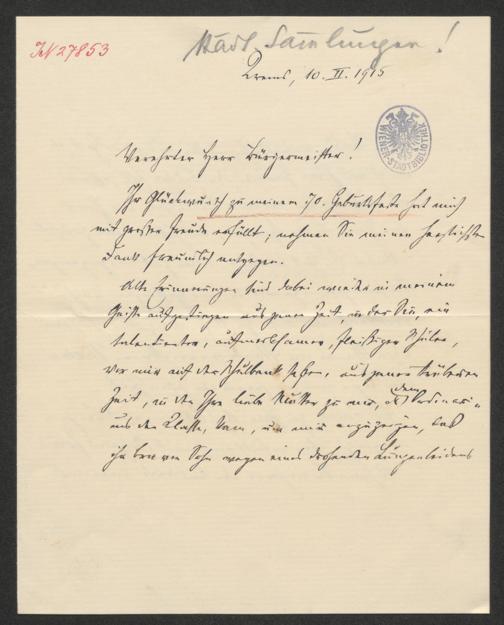 JN 27853
Städt. Sammlungen!
Krems, 10. II. 1915
WIENER-STADTBIBLIOTHEK
Verehrter Herr Bürgermeister!
Ihr Glückwunsch zu meinem 70. Geburtsfeste hat mich
mit großer Freude erfüllt, nehmen Sie meinen herzlichsten
Dank freundlich entgegen.
Alte Erinnerungen sind dabei wieder in meinem
Geiste aufgestiegen aus jener Zeit, in der Sie, ein
talentierter, aufmerksamer, fleißiger Schüler,
vor mir auf der Schulbank saßen, aus jener trüberen
Zeit, in der Ihre liebe Mutter zu mir, dem Ordinari-
us der Klasse, kam, um mir anzuzeigen, daß
ihr braver Sohn wegen eines drohenden Lungenleidens